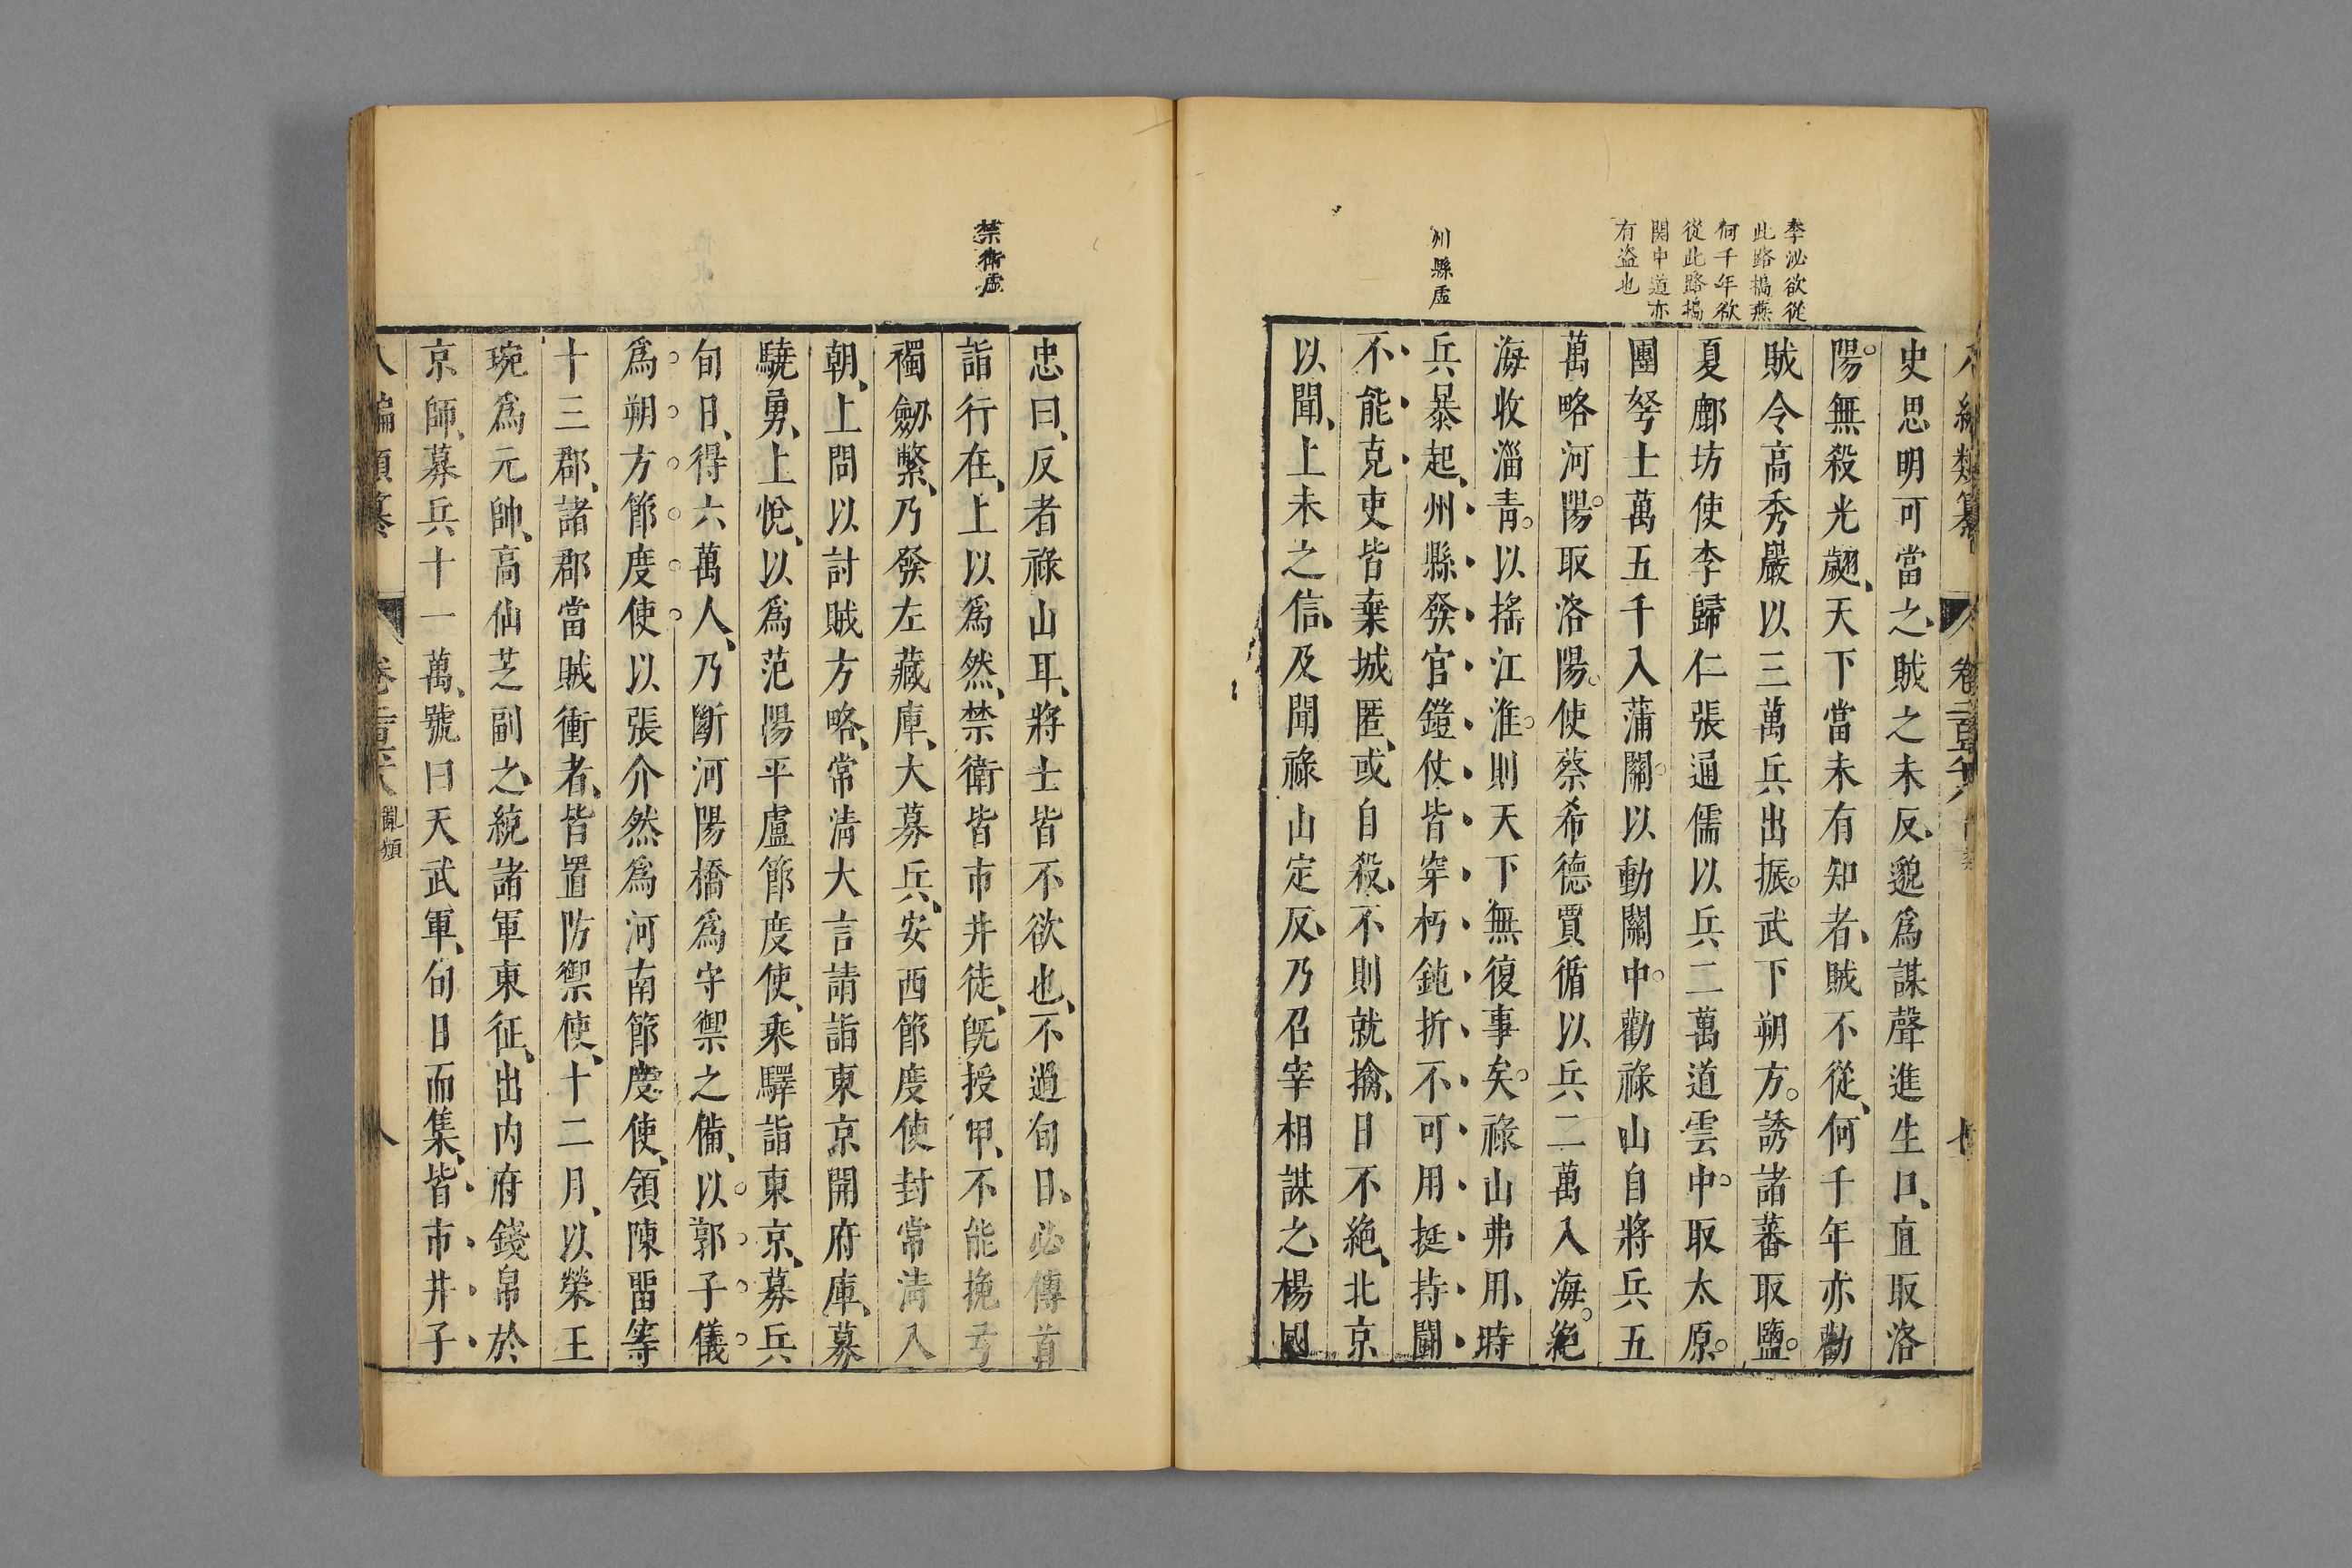 李泌欲從
此路搗燕
何千年欲
從此路搗
関中道亦
有盗也
州縣虛
史思明可當之、賊之未反、邈爲謀聲進生口、直取洛
陽。無殺光翽、天下當未有知者、賊不從、何千年亦勸
賊令高秀巖以三萬兵出振。武下朔方。誘諸蕃取鹽。
夏鄜坊使李歸仁張通儒以兵二萬道雲中。取太原。
團弩士萬五千入蒲關。以動關中。勸祿山自將兵五
萬略河陽。取洛陽。使蔡希德賈循以兵二萬入海。絶
海收淄靑。以搖江淮。則天下無復事矣。祿山弗用、時
兵暴起、州縣發官鎧仗皆穿朽鈍折不可用挺持鬬
不能克吏皆棄城匿、或自殺、不則就擒、日不絶、北京
以聞、上未之信、及聞祿山定反、乃召宰相謀之、楊國
禁衛虛
忠曰、反者祿山耳、將士皆不欲也、不過旬日、必傳首
詣行在、上以爲然、禁衛皆市井徒、旣授甲、不能挽弓
襡劒繫、乃發左藏庫、大募兵、安西節度使封常淸入
朝、上問以討賊方略、常淸大言請詣東京開府庫、募
驍勇、上悅、以爲范陽平盧節度使、乘驛詣東京、募兵
旬日、得六萬人、乃斷河陽橋爲守禦之備、以郭子儀
爲朔方節度使以張介然爲河南節度使、領陳畱等
十三郡、諸郡當賊衝者、皆置防禦使、十二月、以榮王
琬爲元帥、高仙芝副之、統諸軍東征、出内府錢帛於
京師、募兵十一萬、號曰天武軍、旬日而集、皆市井子
八編類纂 卷 亂類 八